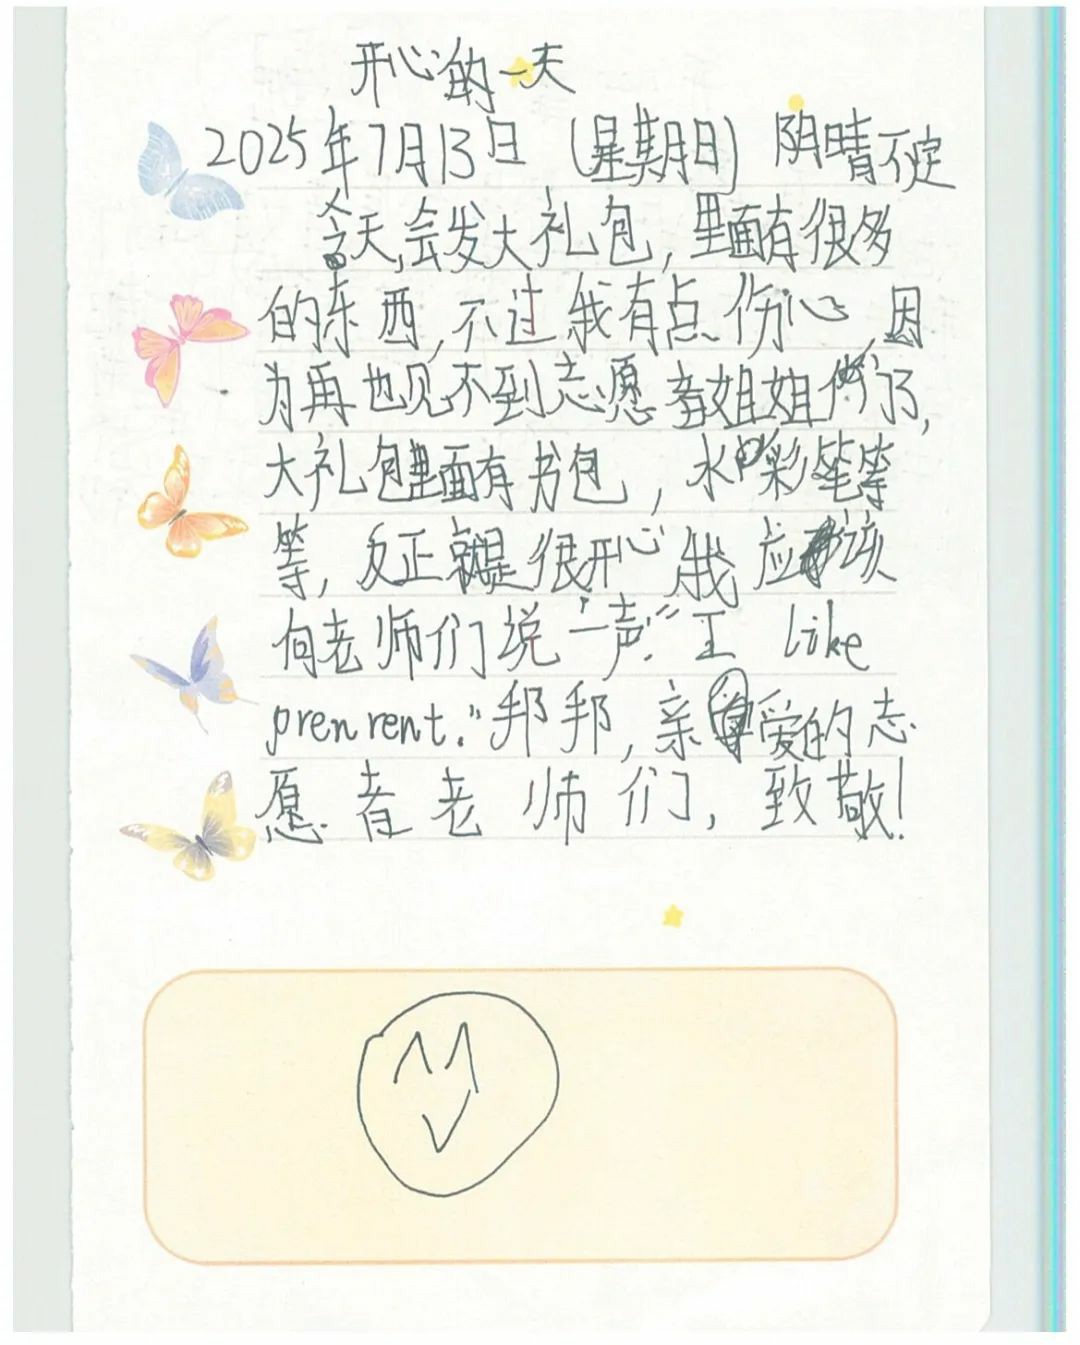 开心的一天
2025年7月13日 (星期日) 阴晴不定
今天,会发大礼包,里面有很多
的东西,不过我有点伤心,因
为再也见不到志愿者姐姐们了,
大礼包里面有书包,水彩笔等
等,反正就是很开心,我应该
向老师们说一声:“I like
prenrent.”邦邦,亲爱的志
愿者老师们,致敬!